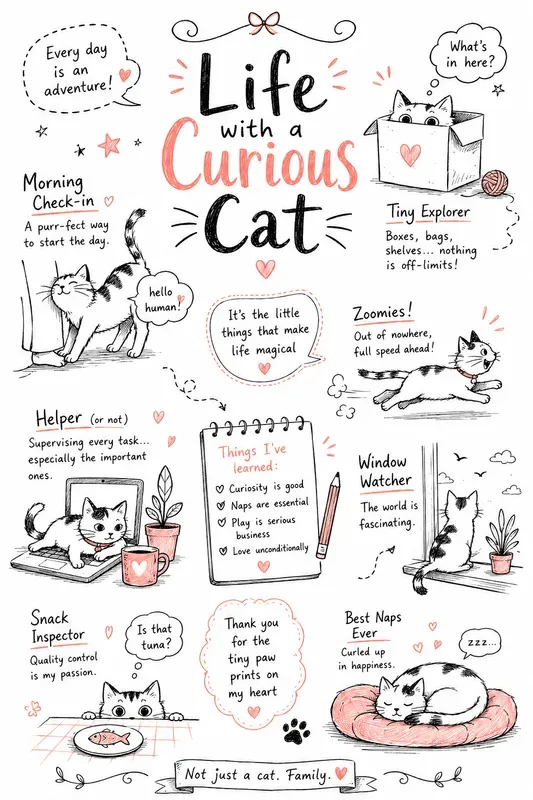 Every day
is an
adventure!
Life
with a
Curious
Cat
What's
in here?
Morning
Check-in
A purr-fect way
to start the day.
hello
human!
Tiny Explorer
Boxes, bags,
shelves... nothing
is off-limits!
It's the little
things that make
life magical
Zoomies!
Out of nowhere,
full speed ahead!
Helper (or not)
Supervising every task...
especially the important
ones.
Things I've
learned:
Curiosity is good
Naps are essential
Play is serious
business
Love unconditionally
Window
Watcher
The world is
fascinating.
Snack
Inspector
Quality control
is my passion.
Is that
tuna?
Thank you
for the
tiny paw
prints on
my heart
Best Naps
Ever
Curled up
in happiness.
zzz...
Not just a cat. Family.